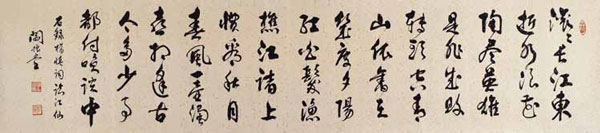 滚滚長江東
逝水浪花
淘盡英雄
是非成敗
轉頭空青
山依舊在
幾度夕陽
紅白髮漁
樵江渚上
慣看秋月
春風一壺
喜相逢古
今多少事
都付笑談中
右錄楊慎詞臨江仙